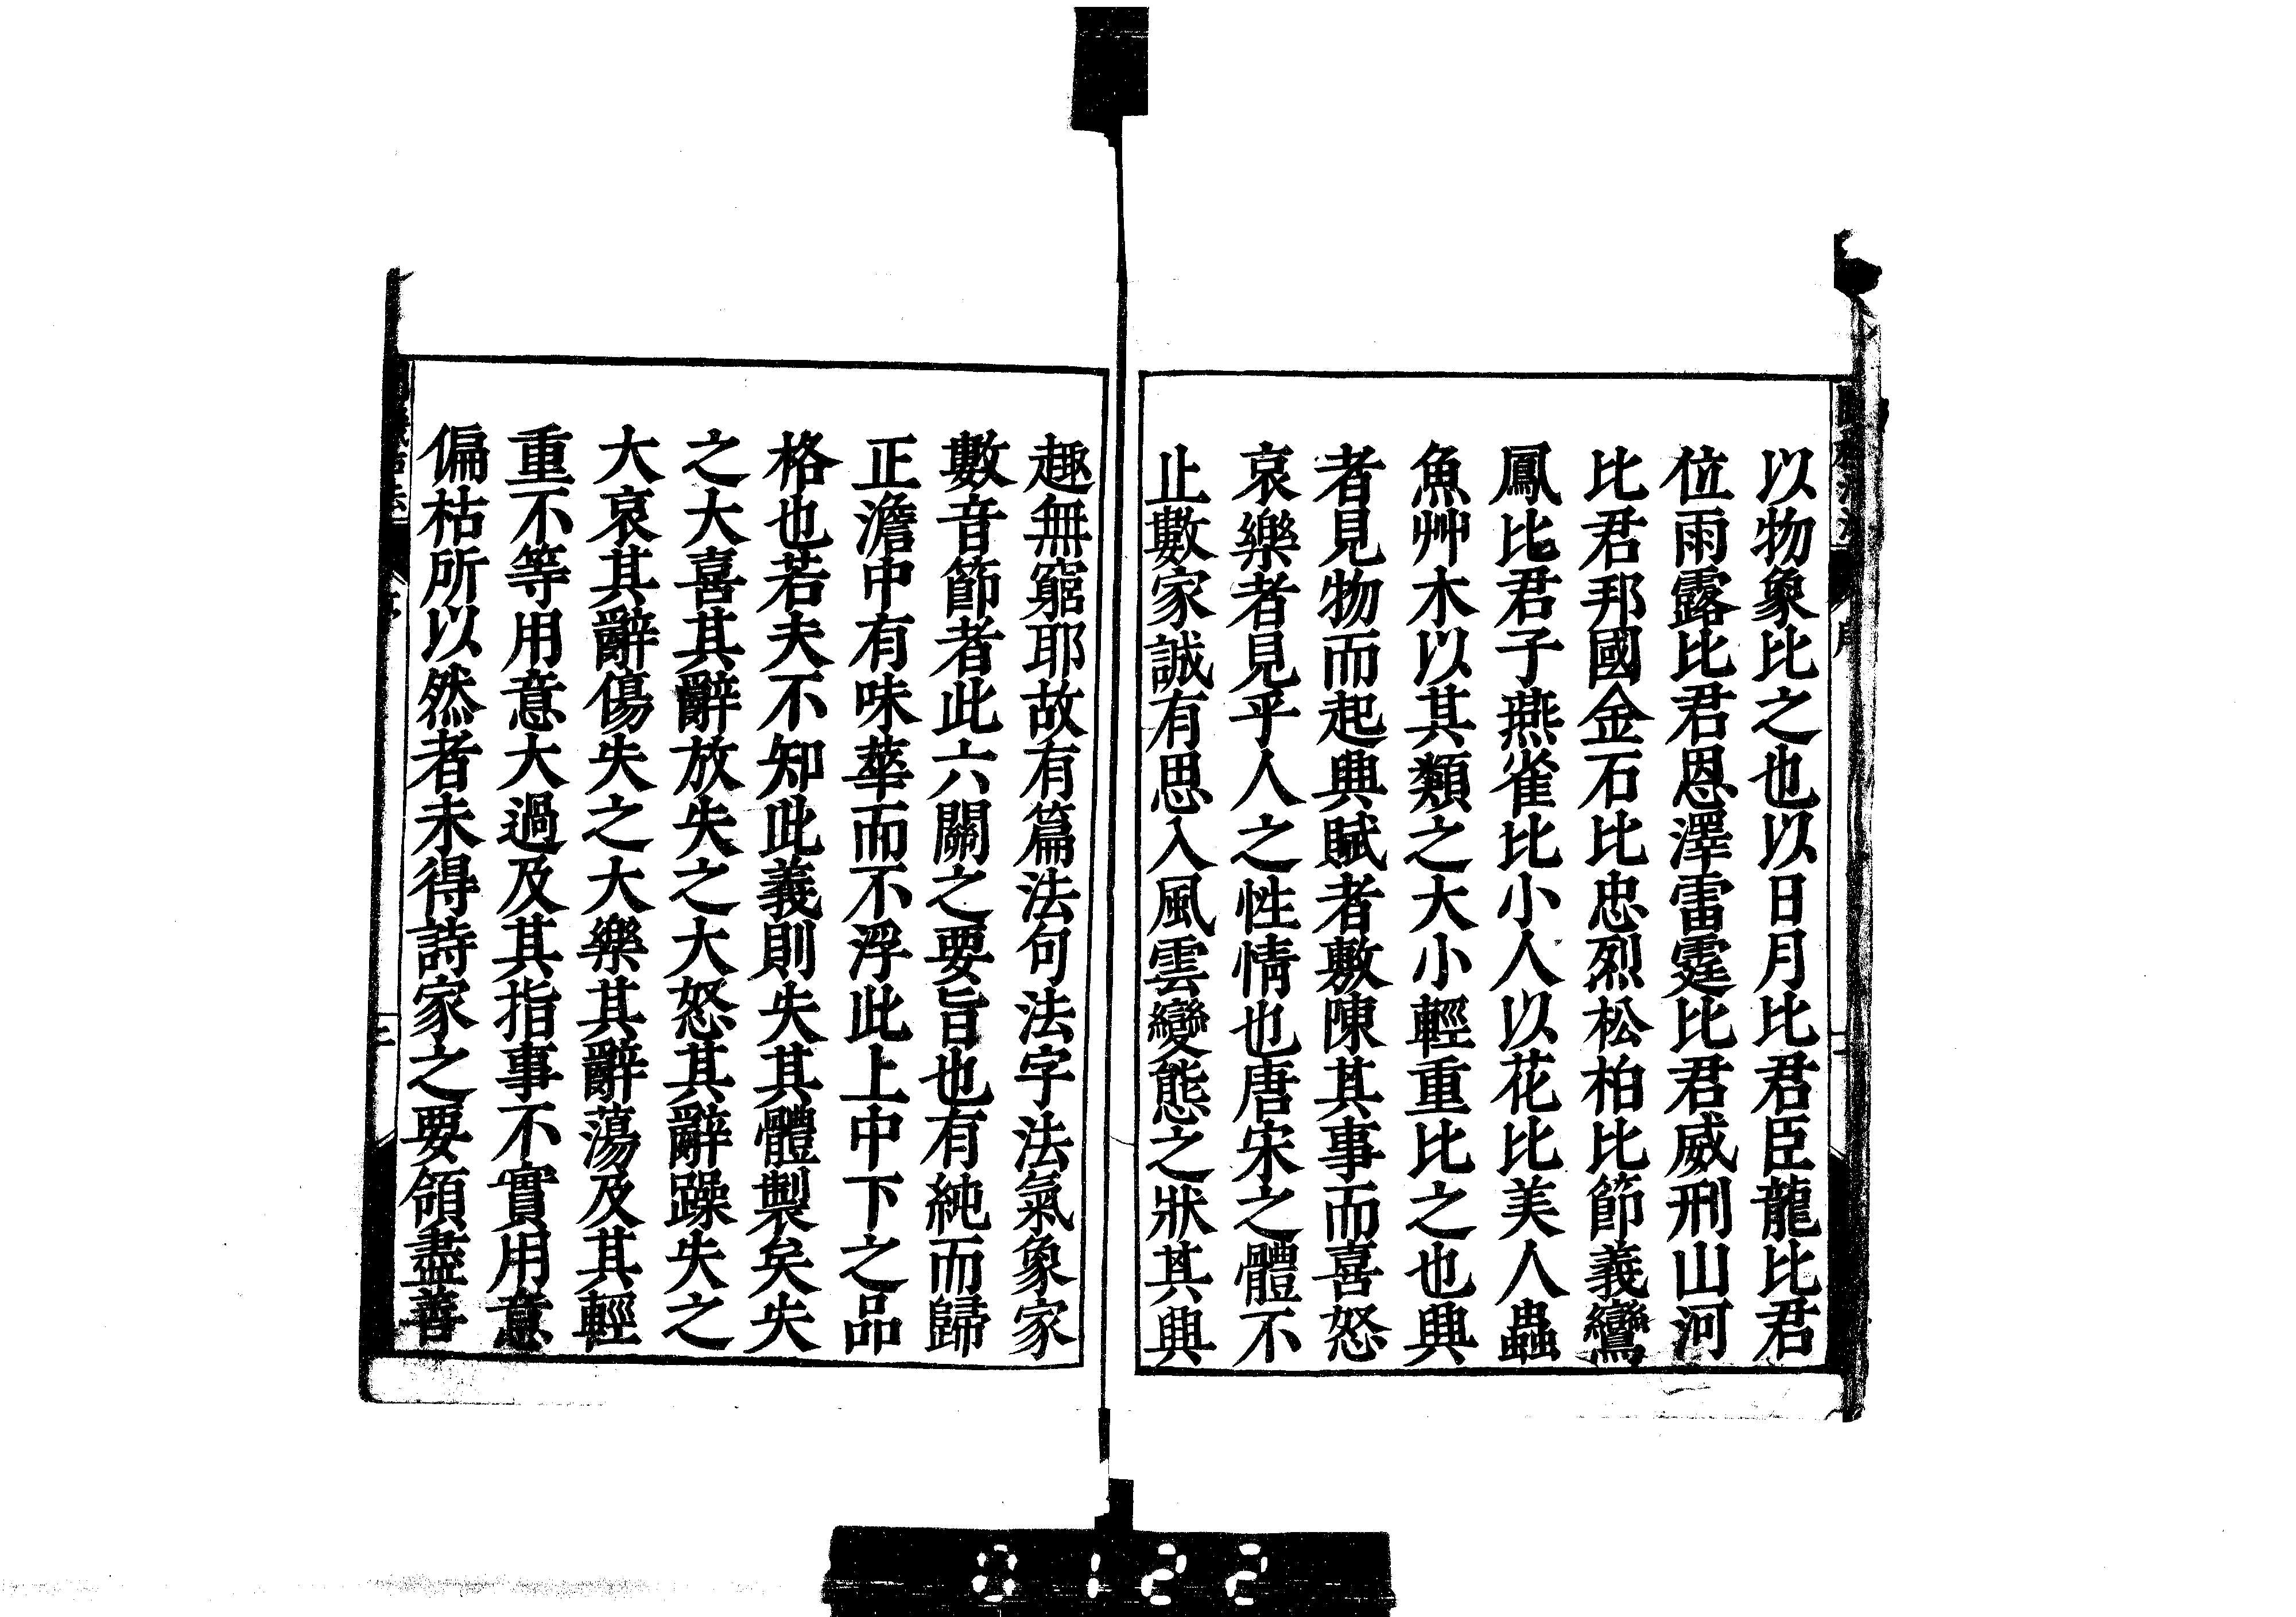 以物象比之也以日月比君臣龍比君
位雨露比君恩澤雷霆比君威刑山河
比君邦國金石比忠烈松柏比節義鸞
鳳比君子燕雀比小人以花比美人蟲
魚艸木以其類之大小輕重比之也興
者見物而起興賦者敷陳其事而喜怒
哀樂者見乎人之性情也唐宋之體不
止數家誠有思入風雲變態之狀其興
趣無窮耶故有篇法句法字法氣象家
數音節者此六關之要旨也有純而歸
正澹中有味華而不浮此上中下之品
格也若夫不知此義則失其體製矣失
之大喜其辭放失之大怒其辭躁失之
大哀其辭傷失之大樂其辭蕩及其輕
重不等用意大過及其指事不實用意
偏枯所以然者未得詩家之要領盡善
0122